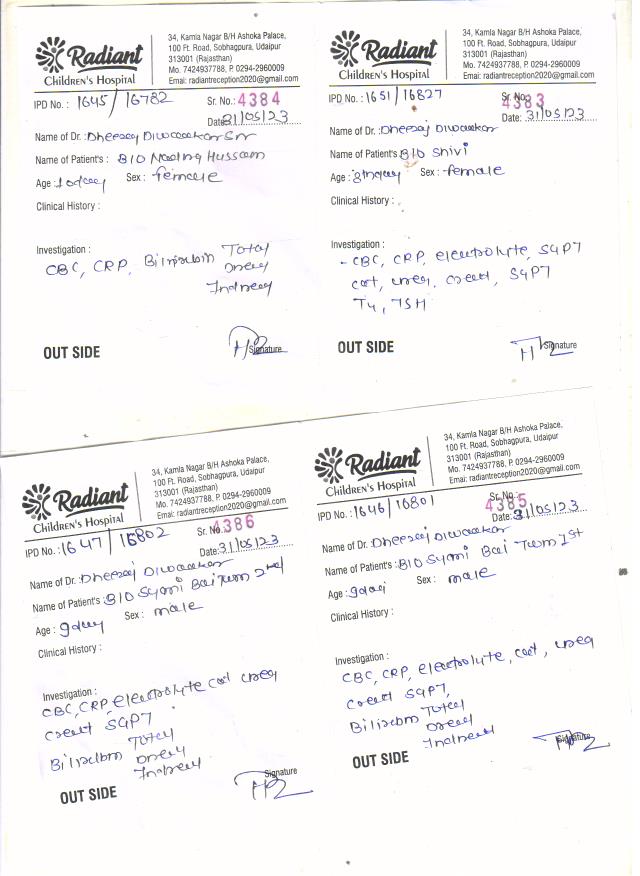 Radiant
Children's Hospital
34, Kamla Nagar B/H Ashoka Palace,
100 Ft. Road, Sobhagpura, Udaipur
313001 (Rajasthan)
Mo. 7424937788, P. 0294-2960009
Emai: radiantreception2020@gmail.com
IPD No. : 1645/16782
Sr. No.: 4384
Date: 31/05/23
Name of Dr. : Dheeraj Diwaakar Snr
Name of Patient's : B/O
Age : 10day Sex : female
Clinical History :
Investigation :
CBC, CRP, Bilirubin Total
OUT SIDE
Signature
Radiant
Children's Hospital
34, Kamla Nagar B/H Ashoka Palace,
100 Ft. Road, Sobhagpura, Udaipur
313001 (Rajasthan)
Mo. 7424937788, P. 0294-2960009
Emai: radiantreception2020@gmail.com
IPD No. : 1651/16827
Sr. No.: 4383
Date: 31/05/23
Name of Dr. : Dheeraj Diwaakar
Name of Patient's B/O Shivi
Age : Sex : female
Clinical History :
Investigation :
- CBC, CRP, electrolyte, SGPT
SGPT
T4, TSH
OUT SIDE
Signature
Radiant
Children's Hospital
34, Kamla Nagar B/H Ashoka Palace,
100 Ft. Road, Sobhagpura, Udaipur
313001 (Rajasthan)
Mo. 7424937788, P. 0294-2960009
Emai: radiantreception2020@gmail.com
IPD No. : 1647/16802
Sr. No. 4386
Date: 31/05/23
Name of Dr. : Dheeraj Diwaakar
Name of Patient's : B/O Syani Bai Twin 2nd
Age : 9day Sex : male
Clinical History :
Investigation :
CBC, CRP, electrolyte
SGPT
Total
OUT SIDE
Signature
Radiant
Children's Hospital
34, Kamla Nagar B/H Ashoka Palace,
100 Ft. Road, Sobhagpura, Udaipur
313001 (Rajasthan)
Mo. 7424937788, P. 0294-2960009
Emai: radiantreception2020@gmail.com
IPD No. : 1646/16801
Sr. No.: 4385
Date: 31/05/23
Name of Dr. : Dheeraj Diwaakar
Name of Patient's : B/O Syani Bai Twin 1st
Age : 9day Sex : male
Clinical History :
Investigation :
CBC, CRP, electrolyte,
SGPT,
Total
OUT SIDE
Signature